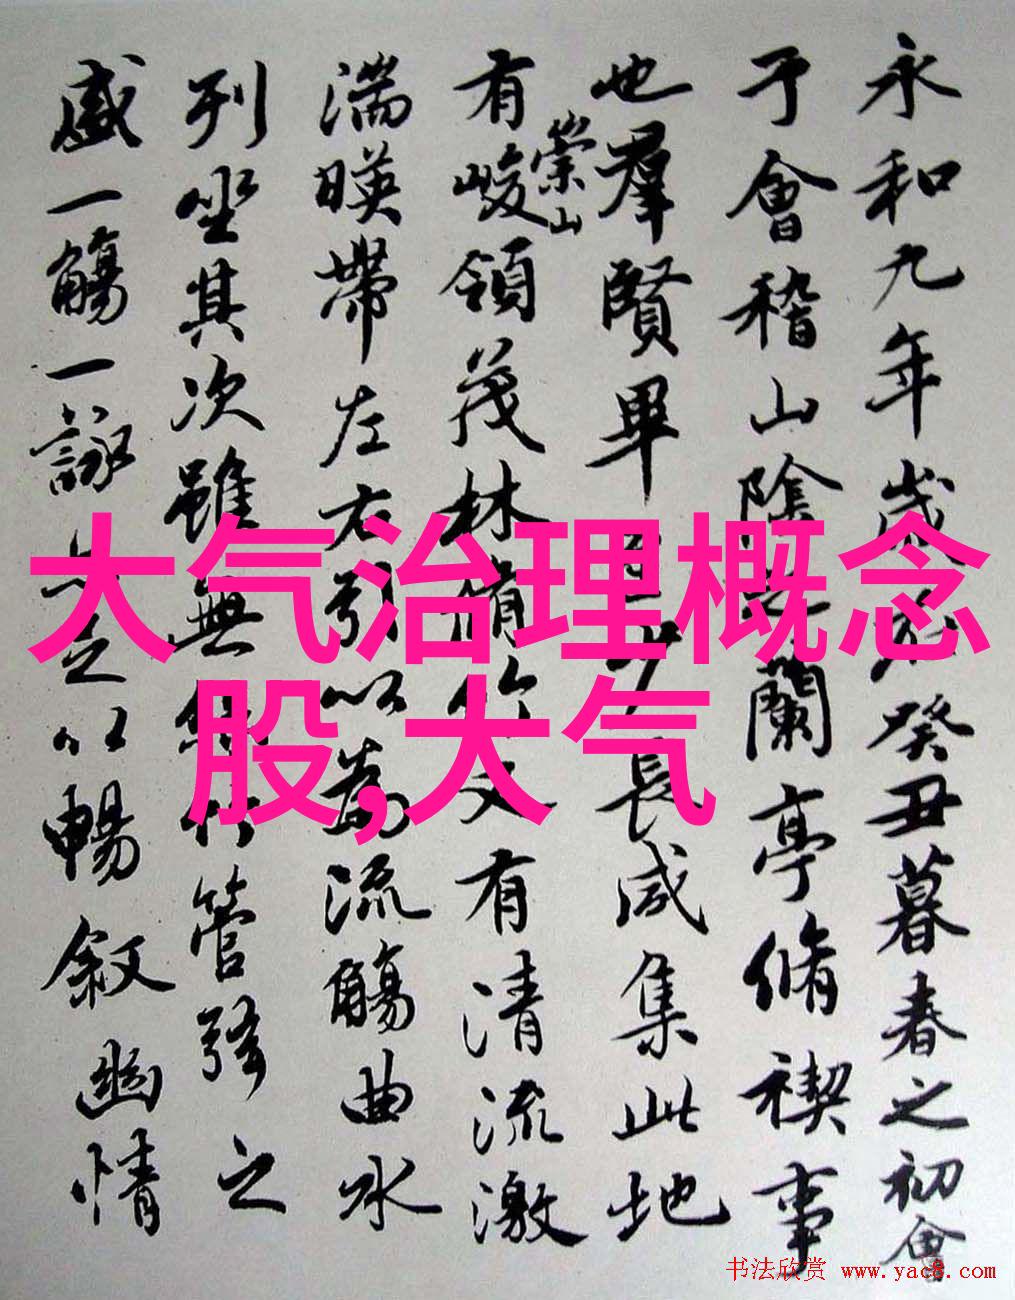 永和九年歲癸丑暮春之初會
于會稽山陰之蘭亭脩禊事
也羣賢畢至少長咸集此地
有崇山峻領茂林脩竹又有清流激
湍暎帶左右引以為流觴曲水
列坐其次雖無絲竹管弦之
盛一觴一詠亦足以暢敘幽情
大气治理概念
股,大气
书法欣赏 www.yac8.com